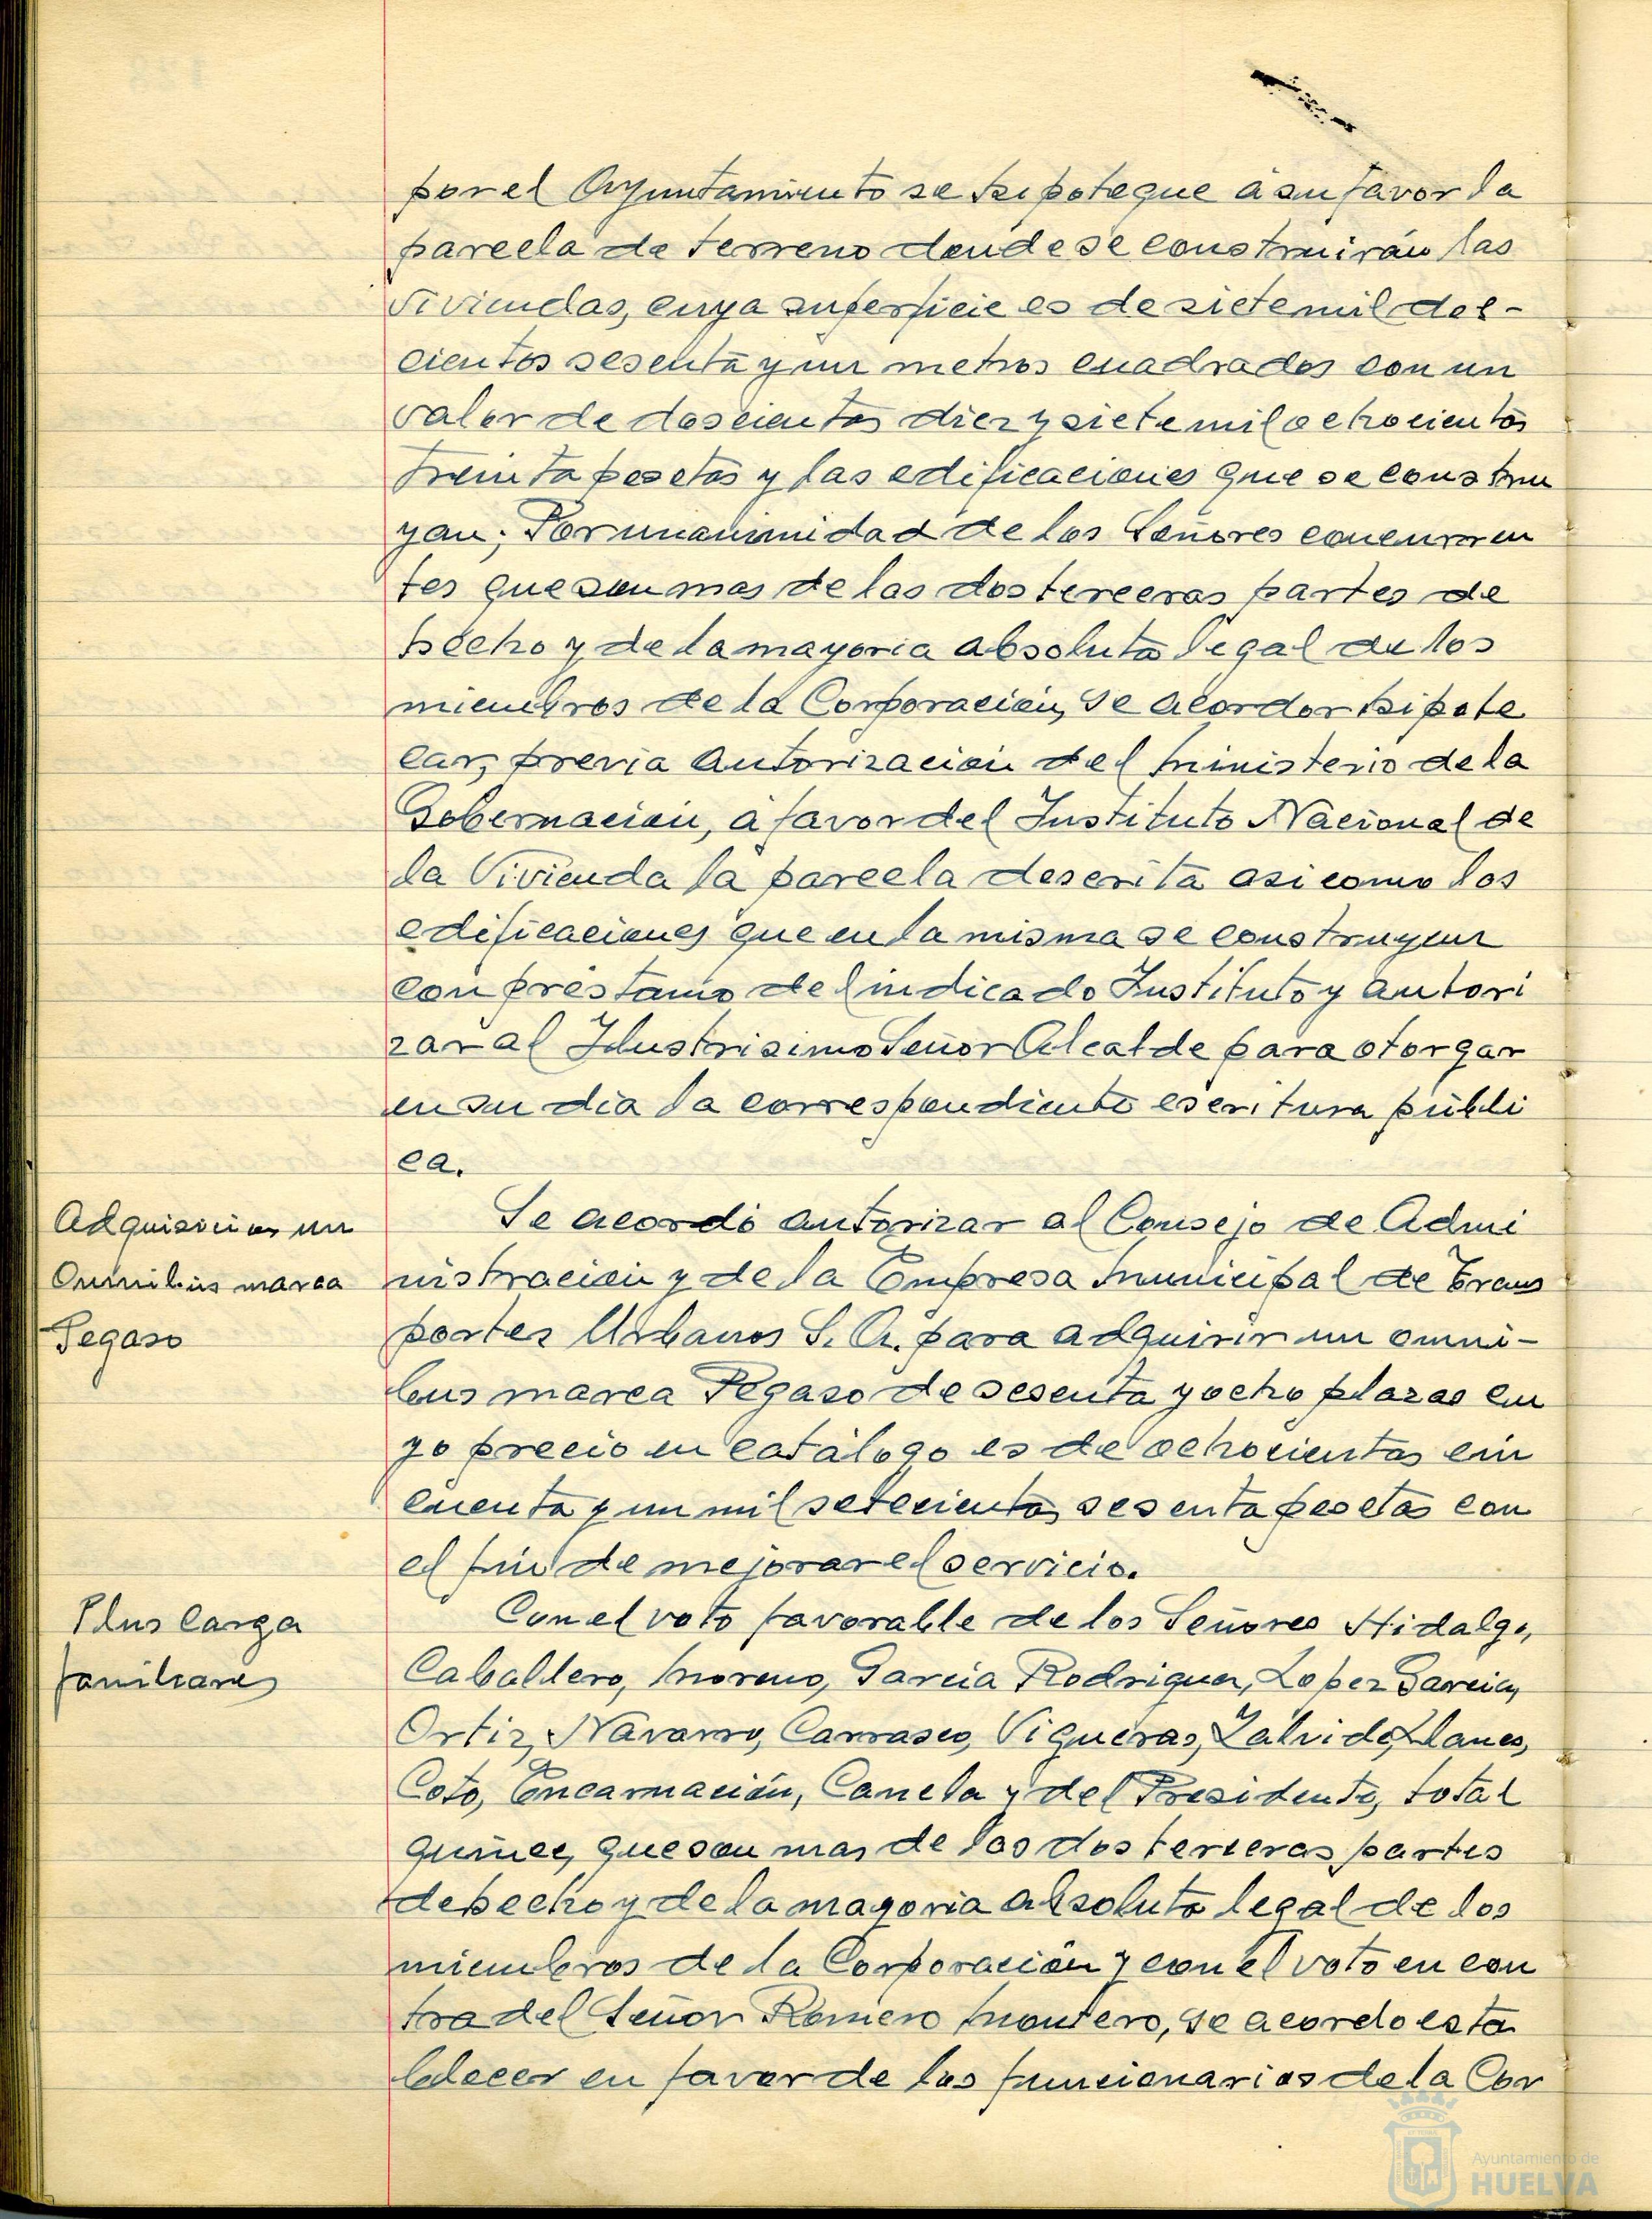 por el Ayuntamiento se hipoteque a su favor la
parcela de terreno donde se construirán las
viviendas, cuya superficie es de siete mil dos-
cientos sesenta y un metros cuadrados con un
valor de doscientas diez y siete mil ochocientas
treinta pesetas y las edificaciones que se constru
yan; Por unanimidad de los Señores concurren
tes que son mas de las dos terceras partes de
hecho y de la mayoria absoluta legal de los
miembros de la Corporación, se acordor hipote
car, previa autorización del Ministerio de la
Gobernación, a favor del Instituto Nacional de
la Vivienda la parcela descrita asi como las
edificaciones que en la misma se construyeur
con préstamo del indicado Instituto y autori
zar al Ilustrisimo Señor Alcalde para otorgar
en su dia la correspondiente escritura públi
ca.
Adquisición un
Omnibus marca
Pegaso
Se acordó autorizar al Consejo de Admi
nistración y de la Empresa Municipal de Trans
portes Urbanos S. A. para adquirir un omni-
bus marca Pegaso de sesenta y ocho plazas cu
yo precio en catálogo es de ochocientas cin
cuenta y un mil setecientas sesenta pesetas con
el fin de mejorar el servicio.
Plus carga
familiares
Con el voto favorable de los Señores Hidalgo,
Caballero, Moreno, Garcia Rodriguez, Lopez Garcia,
Ortiz, Navarro, Carrasco, Vigueras, Zalvide, Llanes,
Coto, Encarnación, Canela y del Presidente, total
quince, que son mas de las dos terceras partes
de hecho y de la mayoria absoluta legal de los
miembros de la Corporación y con el voto en con
tra del Señor Romero Montero, se acordo esta
blecer en favor de los funcionarios de la Cor
Ayuntamiento de
HUELVA